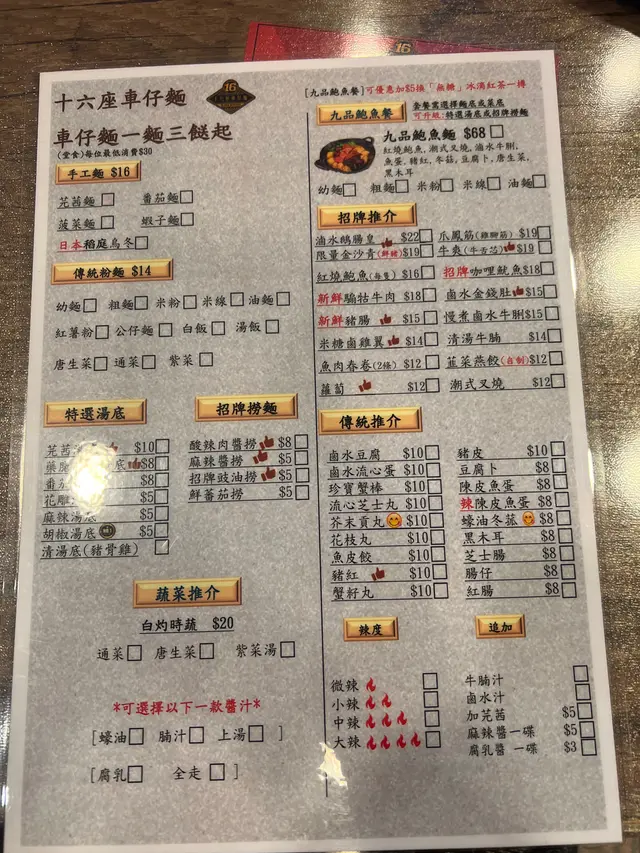 16
十六座車仔麵
16
車仔麵一麵三餸起
(堂食)每位最低消費$30
手工麵 $16
芫茜麵
番茄麵
菠菜麵
蝦子麵
日本稻庭烏冬
傳統粉麵 $14
幼麵 粗麵 米粉 米線 油麵
紅薯粉 公仔麵 白飯 湯飯
唐生菜 通菜 紫菜
特選湯底
芫茜 $10
底 $8
番茄 $8
花雕 $5
麻辣湯底 $5
胡椒湯底 $5
清湯底(豬骨雞)
招牌撈麵
酸辣肉醬撈 $8
麻辣醬撈 $5
招牌豉油撈 $5
鮮蕃茄撈 $5
蔬菜推介
白灼時蔬 $20
通菜 唐生菜 紫菜湯
*可選擇以下一款醬汁*
[蠔油 腩汁 上湯 ]
[腐乳 全走 ]
[九品鮑魚餐]可優惠加$5換「無糖」冰滴紅茶一樽
九品鮑魚餐
套餐需選擇麵底或菜底
可升級:特選湯底或招牌撈麵
九品鮑魚麵 $68
紅燒鮑魚,潮式叉燒,滷水牛脷,
魚蛋,豬紅,冬菇,豆腐卜,唐生菜,
黑木耳
幼麵 粗麵 米粉 米線 油麵
招牌推介
滷水鵝腸皇 $22
爪鳳筋(雞腳筋) $19
限量金沙青(鮮豬) $19
牛爽(牛舌芯) $19
紅燒鮑魚(每隻) $16
招牌咖哩魷魚$18
新鮮騸牯牛肉 $18
鹵水金錢肚 $15
新鮮豬腸 $15
慢煮鹵水牛脷$15
米糖鹵雞翼 $14
清湯牛腩 $14
魚肉春卷(2條) $12
韮菜燕餃(自制)$12
蘿蔔 $12
潮式叉燒 $12
傳統推介
鹵水豆腐 $10
豬皮 $10
鹵水流心蛋 $10
豆腐卜 $8
珍寶蟹棒 $10
陳皮魚蛋 $8
流心芝士丸 $10
辣陳皮魚蛋 $8
芥末貢丸 $10
蠔油冬菰 $8
花枝丸 $10
黑木耳 $8
魚皮餃 $10
芝士腸 $8
豬紅 $10
腸仔 $8
蟹籽丸 $10
紅腸 $8
辣度
微辣
小辣
中辣
大辣
追加
牛腩汁
鹵水汁
加芫茜 $5
麻辣醬一碟 $5
腐乳醬 一碟 $3